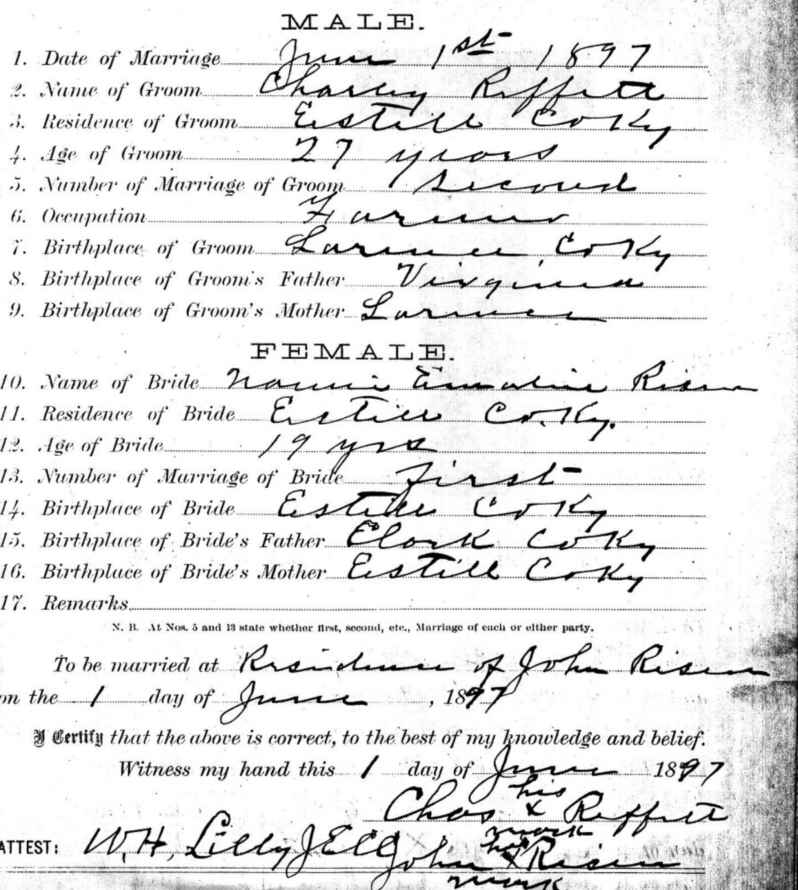 MALE.
1. Date of Marriage June 1st 1897
2. Name of Groom Charley Reffett
3. Residence of Groom Estill Co Ky
4. Age of Groom 27 years
5. Number of Marriage of Groom Second
6. Occupation Farmer
7. Birthplace of Groom Larence Co Ky
8. Birthplace of Groom's Father Virginia
9. Birthplace of Groom's Mother Larence
FEMALE.
10. Name of Bride Nannie Emaline Risen
11. Residence of Bride Estill Co. Ky.
12. Age of Bride 19 yrs
13. Number of Marriage of Bride first
14. Birthplace of Bride Estill Co Ky
15. Birthplace of Bride's Father Clark Co Ky
16. Birthplace of Bride's Mother Estill Co Ky
17. Remarks
N. B. At Nos. 5 and 13 state whether first, second, etc., Marriage of each or either party.
To be married at Residence of John Risen
on the 1 day of June, 1897
I Certify that the above is correct, to the best of my knowledge and belief.
Witness my hand this 1 day of June 1897
his
Chas x Reffett
mark
ATTEST: W. H. Lilly J E C C
his
John x Risen
mark